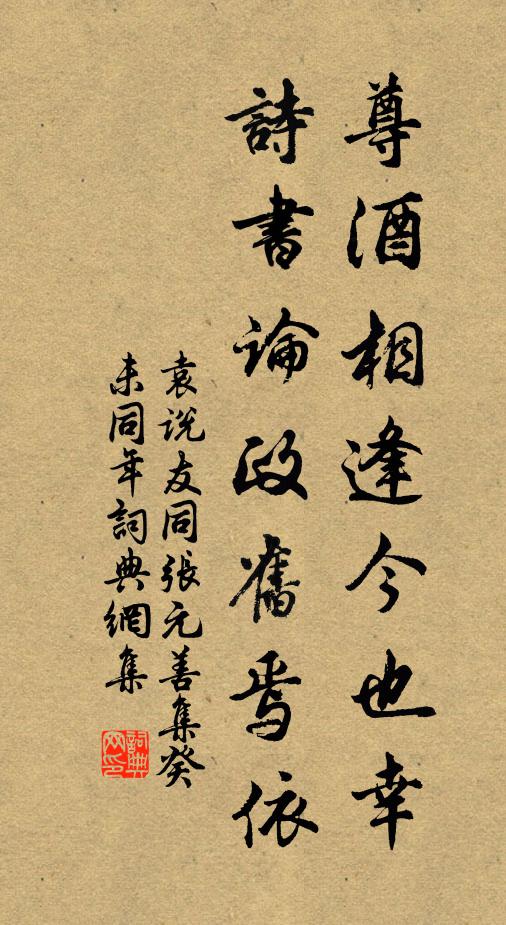 尊酒相逢今也幸
詩書論政舊焉依
袁說友同張元善集癸
未同年詞典網集
詞典網印